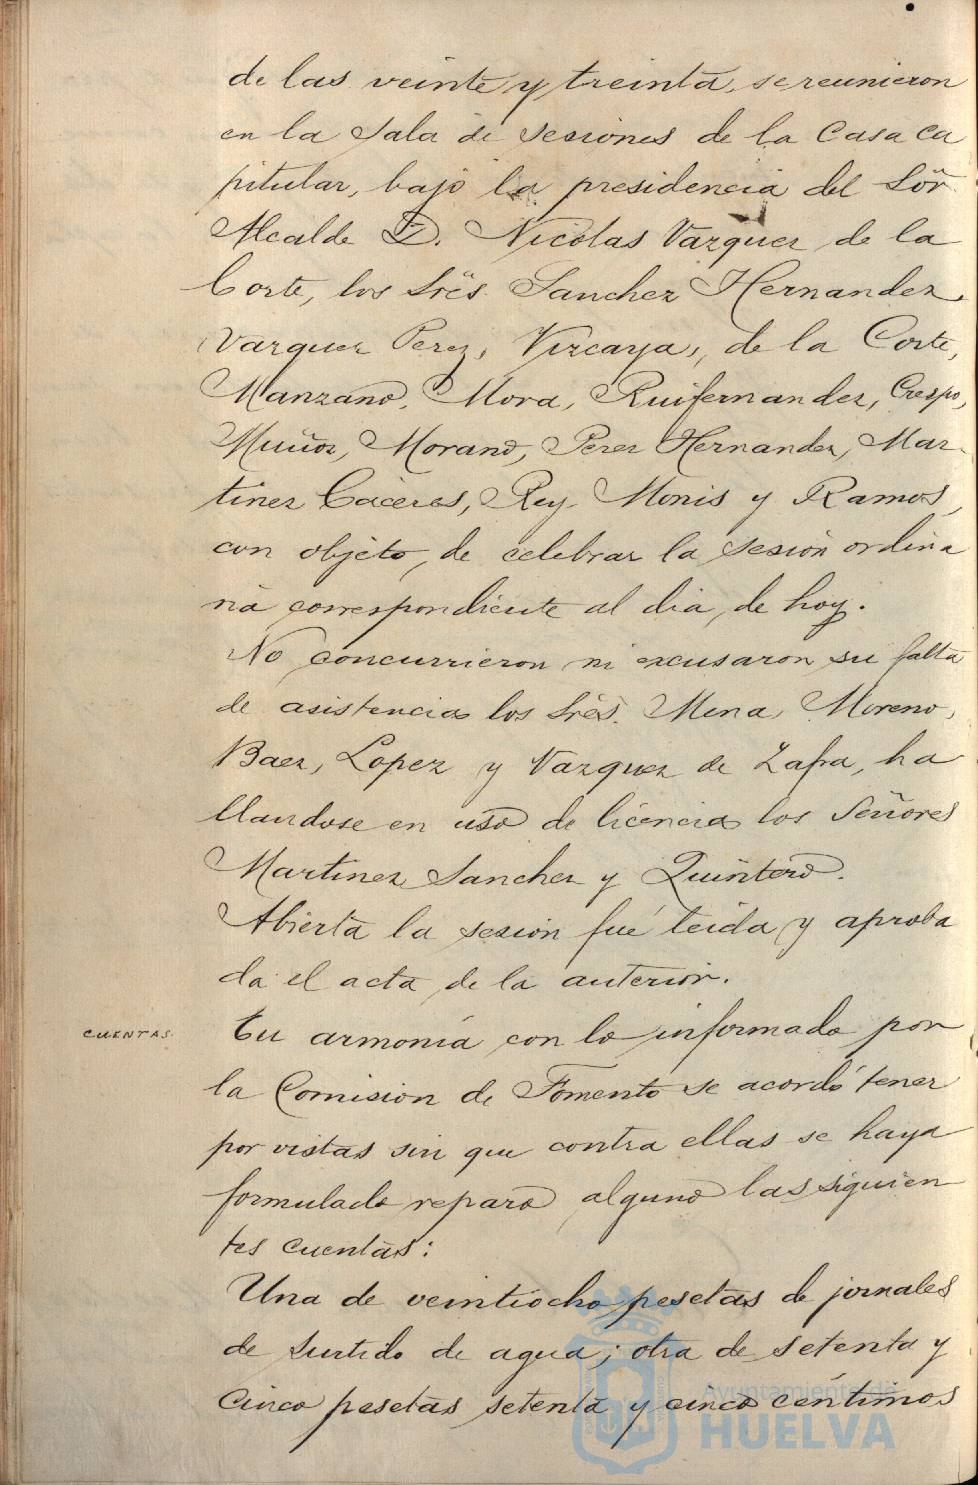 de las veinte y treinta, se reunieron
en la Sala de Sesiones de la Casa Ca
pitular, bajo la presidencia del Sör.
Alcalde D. Nicolas Vazquez de la
Corte, los Srës. Sanchez Hernandez,
Vazquez Perez, Vizcaya, de la Corte,
Manzano, Mora, Ruifernandez, Crespo,
Muñoz, Morano, Perez Hernandez, Mar-
tinez Cáceres, Rey, Monis y Ramos,
con objeto, de celebrar la sesión ordina
ria correspondiente al dia, de hoy.
No concurrieron ni excusaron su falta
de asistencia los Srës. Mena, Moreno,
Baez, Lopez y Vazquez de Zafra, ha
llandose en uso de licencia los Señores
Martinez Sanchez y Quintero.
Abierta la sesion fué leida y aproba
da el acta de la anterior.
CUENTAS.
En armonía con lo informado por
la Comision de Fomento se acordó tener
por vistas sin que contra ellas se haya
formulado reparo alguno las siguien
tes cuentas:
Una de veintiocho pesetas de jornales
de surtido de agua; otra de setenta y
cinco pesetas setenta y cinco centimos
Ayuntamiento de
HUELVA